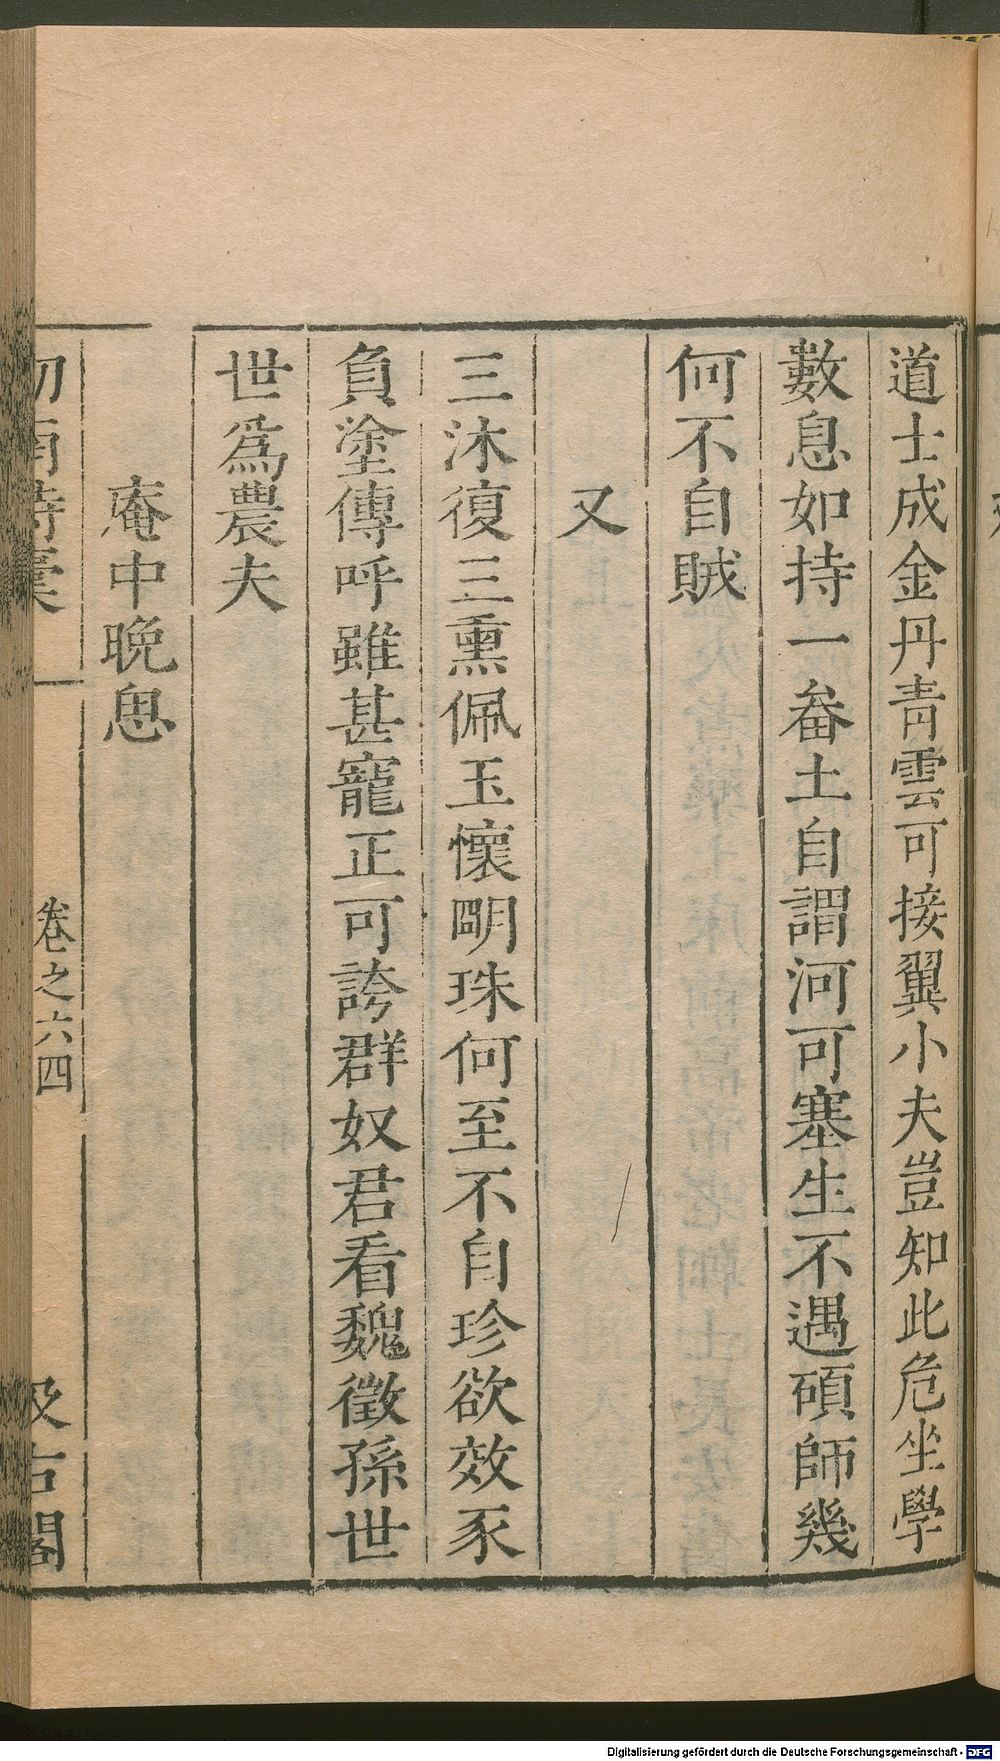 道士成金丹青雲可接翼小夫豈知此危坐學
數息如持一畚土自謂河可塞生不遇碩師幾
何不自賊
又
三沐復三熏佩玉懷明珠何至不自珍欲效豕
負塗傳呼雖甚寵正可誇群奴君看魏徵孫世
世為農夫
庵中晚思
劍南詩稾
卷之六四
汲古閣
Digitalisierung gefördert durch die Deutsche Forschungsgemeinschaft - DFG